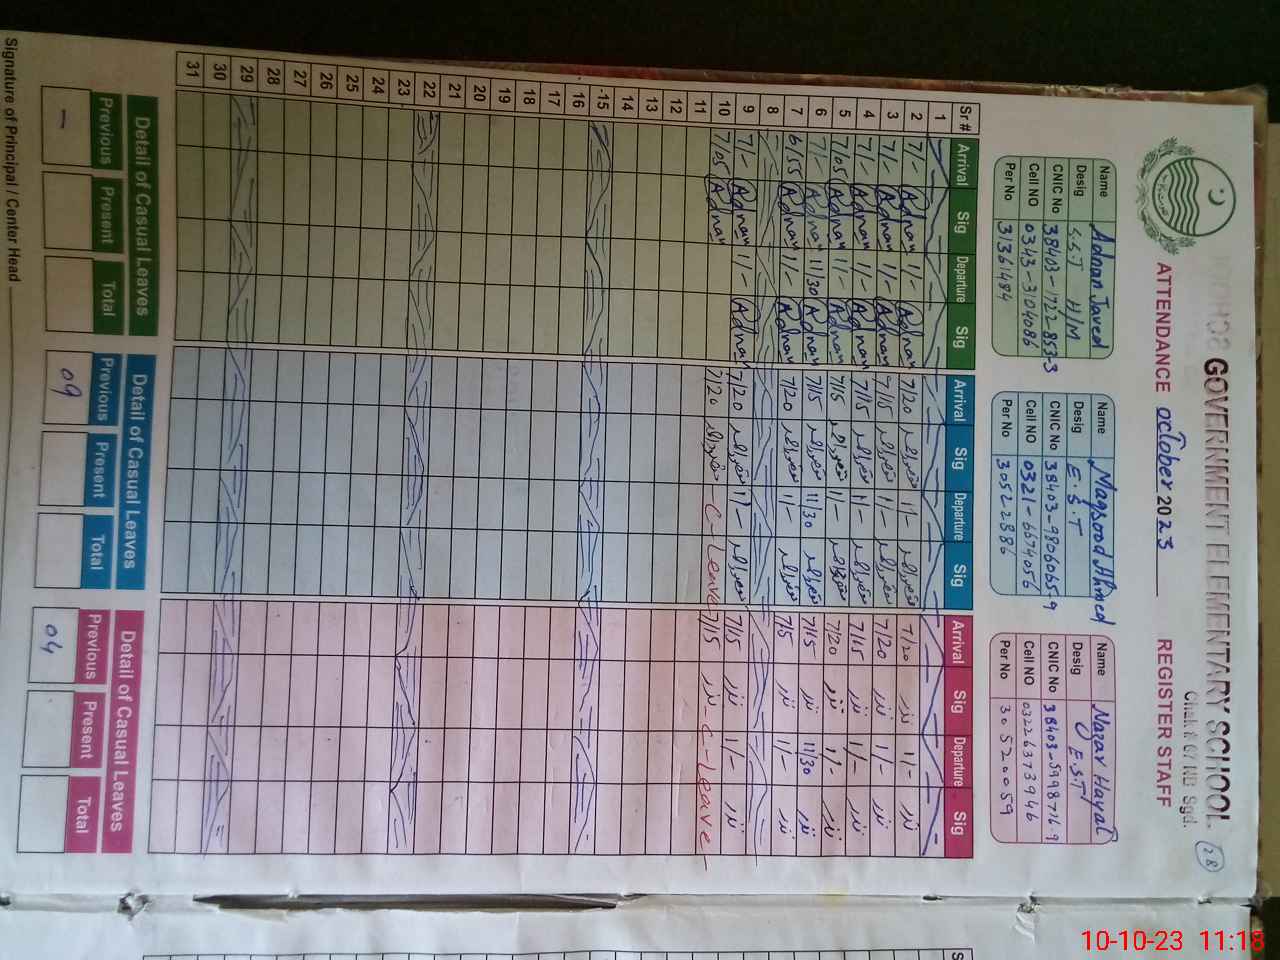 GOVERNMENT ELEMENTARY SCHOOL
28
Chak # 67 NB Sgd.
ATTENDANCE October 2023 REGISTER STAFF
Name Adnan Javed
Desig S.S.T H/M
CNIC No 38403-1722853-3
Cell NO 0343-3104086
Per No 31361484
Name Maqsood Ahmed
Desig E.S.T
CNIC No 38403-9806065-9
Cell NO 0321-6674056
Per No 30522886
Name Nazar Hayat
Desig E.S.T
CNIC No 38403-5998716-9
Cell NO 03226373946
Per No 30520059
Sr# Arrival Sig Departure Sig Arrival Sig Departure Sig Arrival Sig Departure Sig
1
2 7/- Adnan 11/- Adnan 7/20 11/- 7/20 نذر 11/- نذر
3 7/- Adnan 11/- Adnan 7/15 11/- 7/20 نذر 11/- نذر
4 7/- Adnan 11/- Adnan 7/15 11/- 7/15 نذر 11/- نذر
5 7/05 Adnan 11/- Adnan 7/15 11/- 7/20 نذر 11/- نذر
6 7/- Adnan 11/30 Adnan 7/15 11/30 7/15 نذر 11/30 نذر
7 6/55 Adnan 11/- Adnan 7/20 11/- 7/5 نذر 11/- نذر
8
9 7/- Adnan 11/- Adnan 7/20 11/- 7/15 نذر 11/- نذر
10 7/05 Adnan 7/20 -C-Leave 7/15 نذر -C-Leave-
11
12
13
14
15
16
17
18
19
20
21
22
23
24
25
26
27
28
29
30
31
Detail of Casual Leaves Detail of Casual Leaves Detail of Casual Leaves
Previous Present Total Previous Present Total Previous Present Total
- 09 04
Signature of Principal / Center Head
10-10-23 11:18